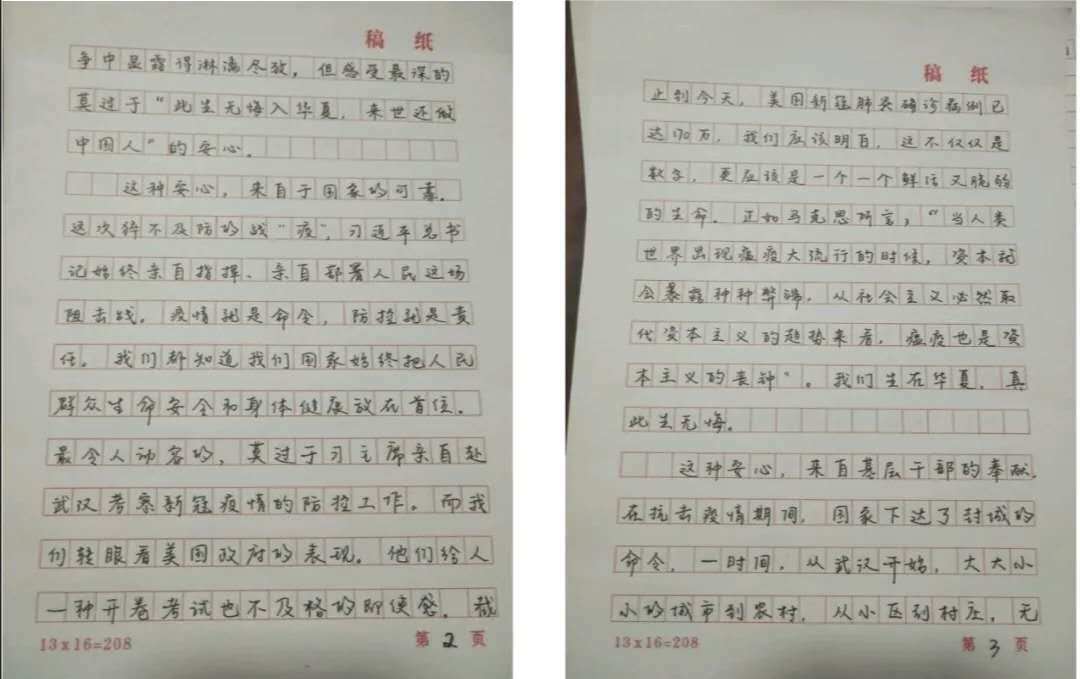 稿 纸
争中显露得淋漓尽致，但感受最深的
莫过于“此生无悔入华夏，来世还做
中国人”的安心。
这种安心，来自于国家的可靠。
这次猝不及防的战“疫”，习近平总书
记始终亲自指挥、亲自部署人民这场
阻击战。疫情就是命令，防控就是责
任。我们都知道我们国家始终把人民
群众生命安全和身体健康放在首位。
最令人动容的，莫过于习主席亲自赴
武汉考察新冠疫情的防控工作。而我
们转眼看美国政府的表现。他们给人
一种开卷考试也不及格的即使感。截
13x16=208
第 2 页
稿 纸
止到今天，美国新冠肺炎确诊病例已
达170万，我们应该明白，这不仅仅是
数字，更应该是一个一个鲜活又脆弱
的生命。正如马克思所言：“当人类
世界出现瘟疫大流行的时候，资本就
会暴露种种弊端，从社会主义必然取
代资本主义的趋势来看，瘟疫也是资
本主义的丧钟”。我们生在华夏，真
此生无悔。
这种安心，来自基层干部的奉献。
在抗击疫情期间，国家下达了封城的
命令，一时间，从武汉开始，大大小
小的城市到农村，从小区到村庄，无
13x16=208
第 3 页